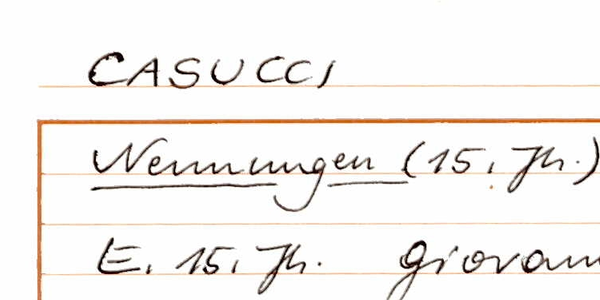 CASUCCI
Nennungen (15. Jh.)
E. 15. Jh. Giovan